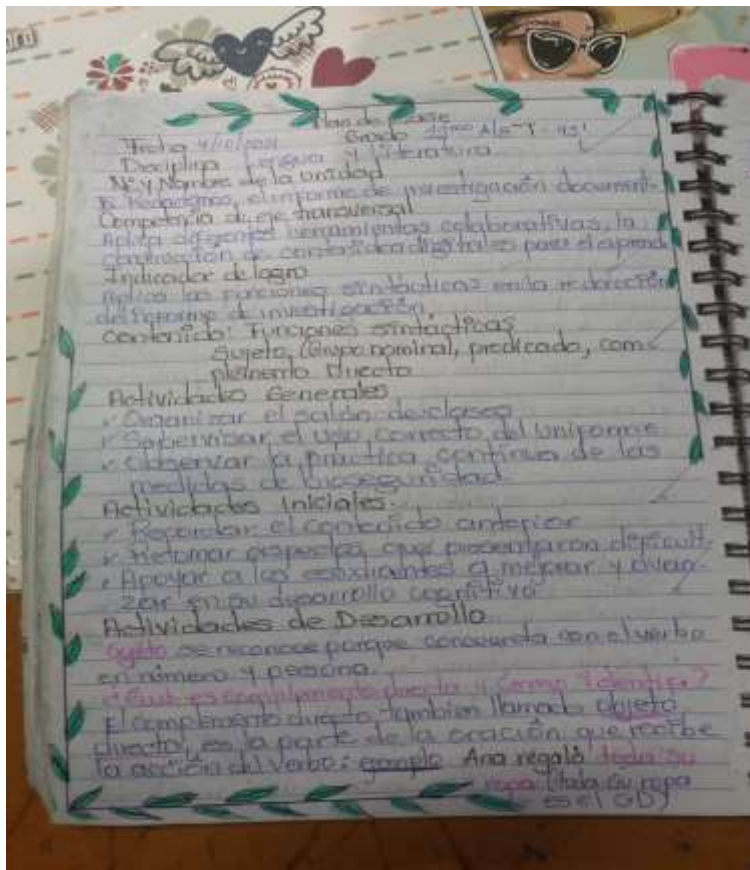 Plan de clase
Fecha 4/10/2021 Grado
Disciplina Lengua y Literatura
N° y Nombre de la unidad
el informe de investigación document-
Competencia de eje transversal
Aplica diferentes herramientas colaborativas, la
construcción de contenidos digitales para el aprend
Indicador de logro
Aplica las funciones sintácticas en la redacción
del informe de investigación.
Contenido: Funciones sintácticas
Sujeto, (Grupo nominal, predicado, com-
plemento directo
Actividades Generales
✓ Organizar el salón de clases
✓ Supervisar el uso correcto del uniforme
✓ Observar la práctica continua de las
medidas de bioseguridad.
Actividades Iniciales.
✓ Recordar el contenido anterior
✓ Retomar aspectos que presentaron dificult.
✓ Apoyar a los estudiantes a mejorar y avan-
zar en su desarrollo cognitivo
Actividades de Desarrollo
Sujeto se reconoce porque concuerda con el verbo
en número y persona.
¿Qué es complemento directo y cómo identifica?
El complemento directo, tambien llamado objeto
directo, es la parte de la oración que recibe
la acción del verbo: ejemplo Ana regaló toda su
ropa (toda su ropa
es el CD)